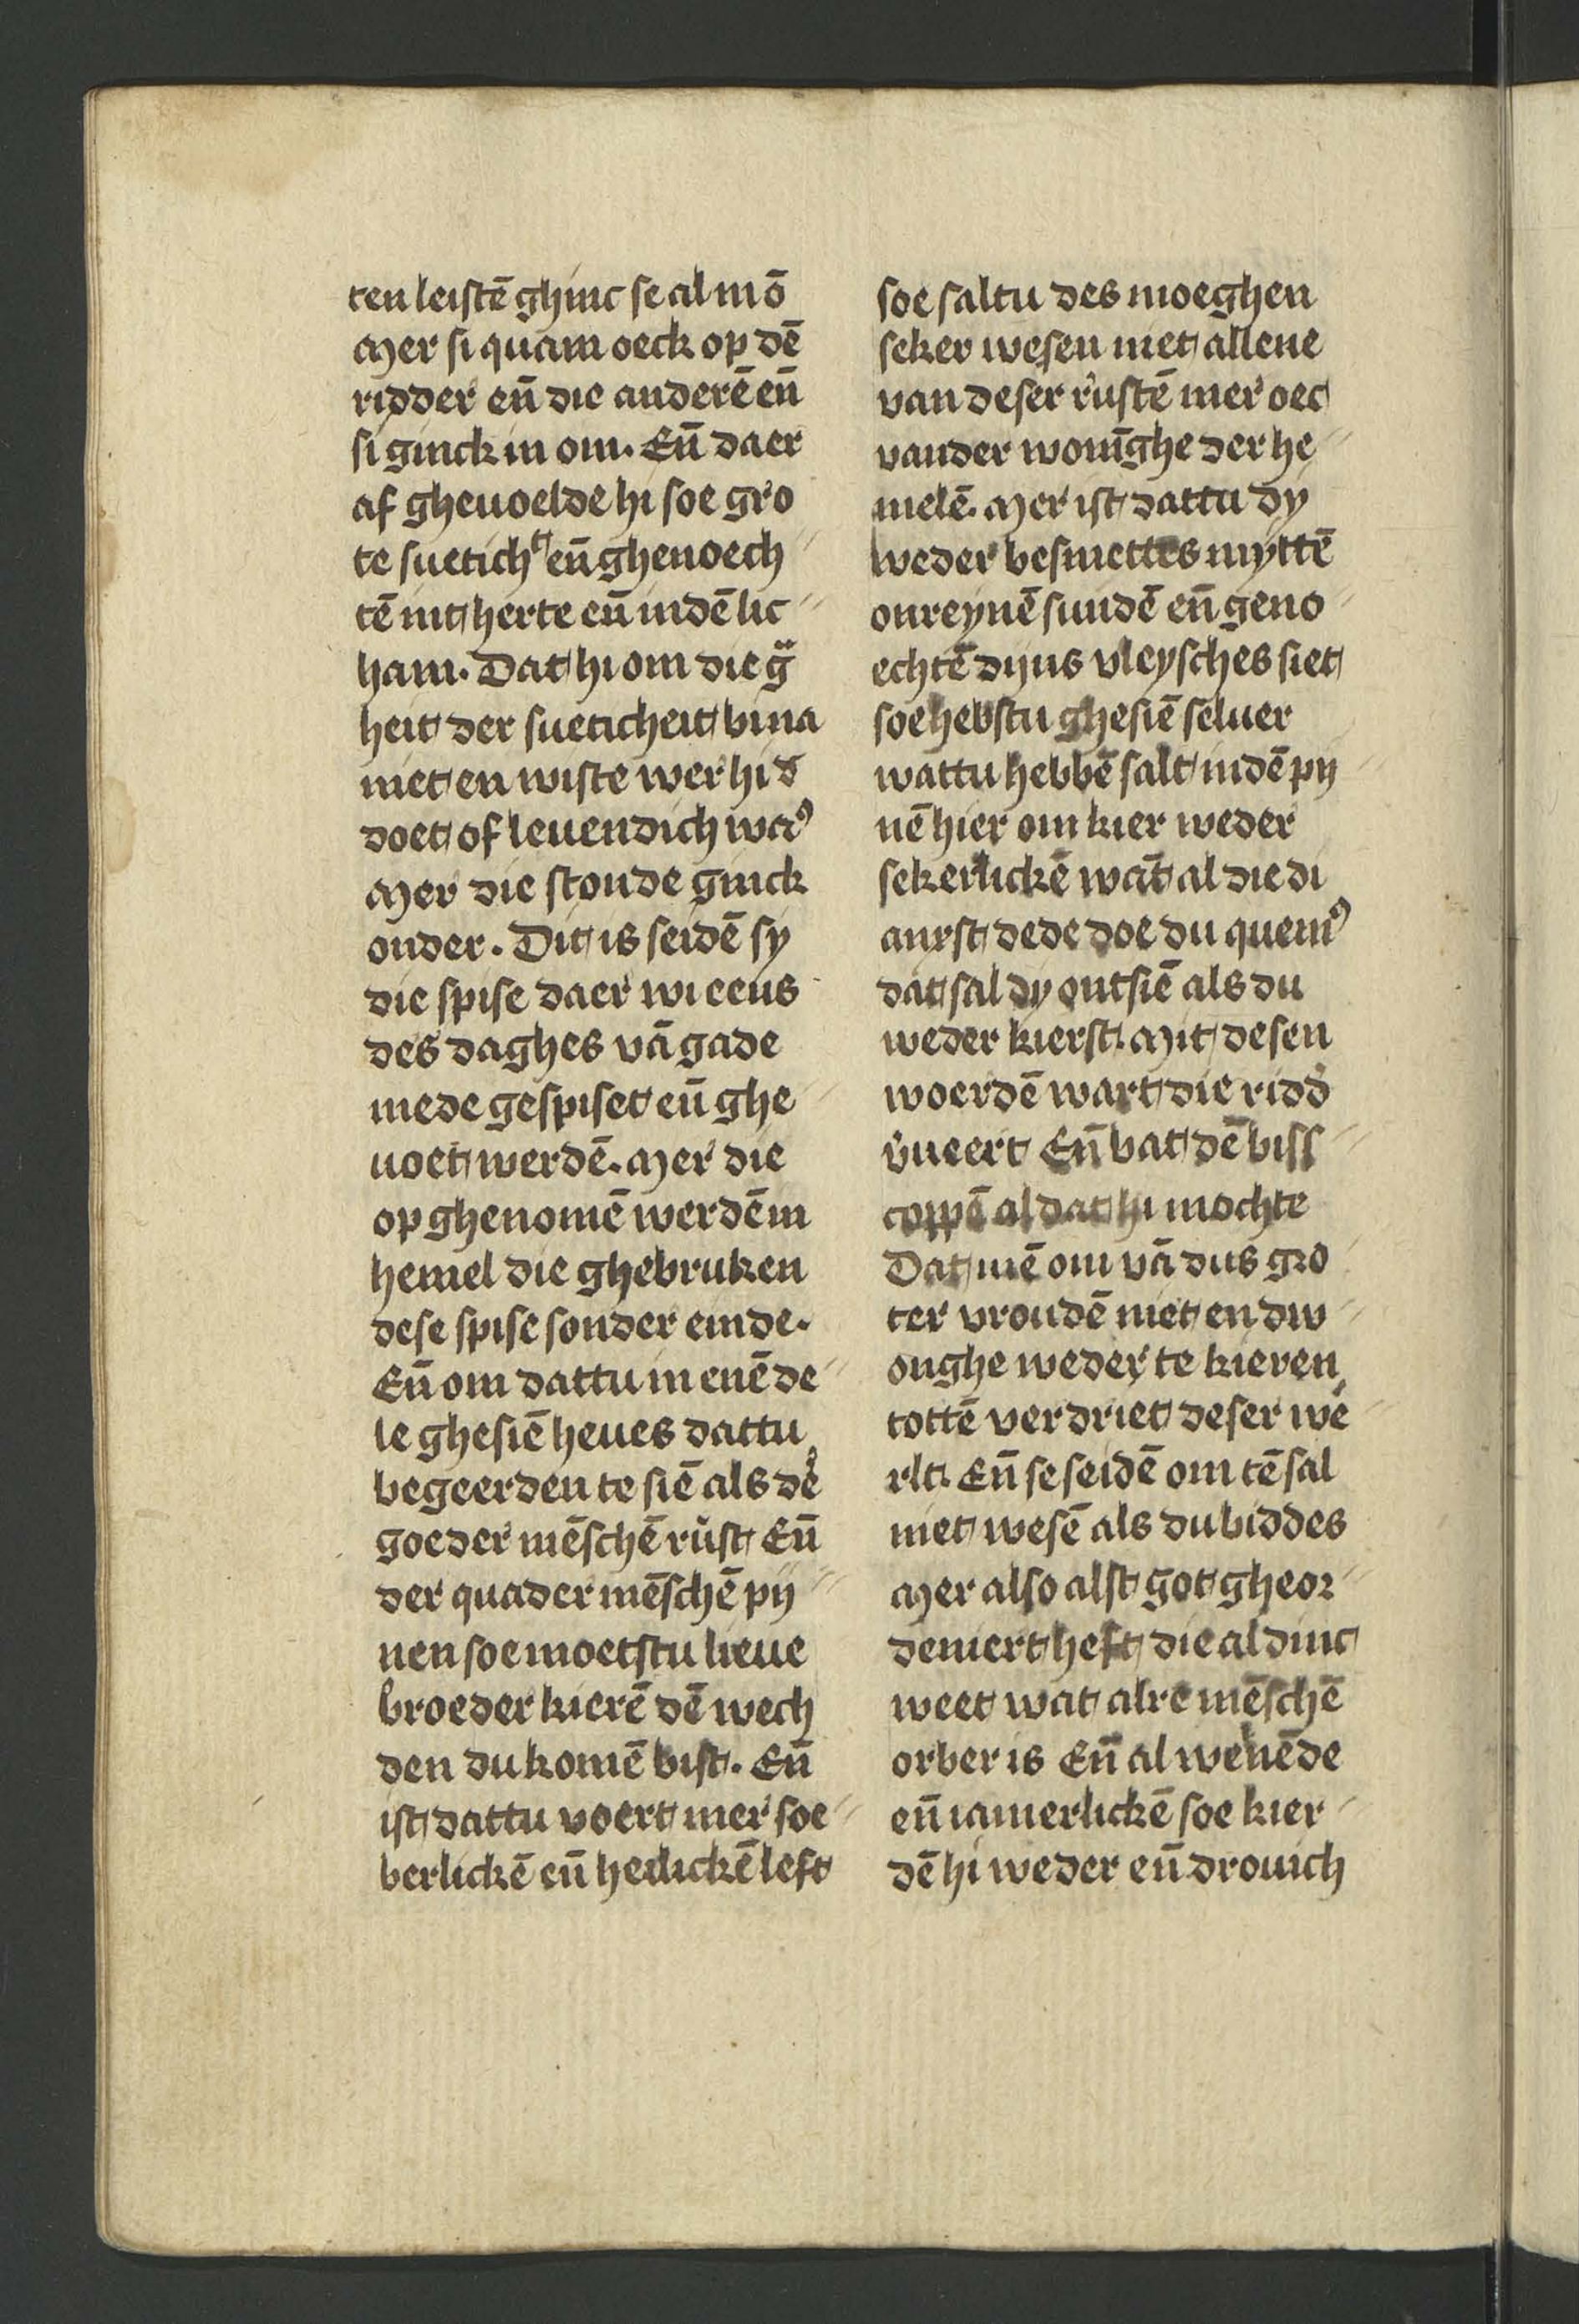 ten leistē ghinc se al in ō
Mer si quam oeck op dē
ridder eñ die anderē eñ
si ginck in om. Eñ daer
af gheuoelde hi soe gro
te sueticht eñ ghenoech
tē int herte eñ indē lic
ham. Dat hi om die
heit der sueticheit bina
niet en wiste wer hi
doet of leuendich
Mer die stonde ginck
onder. Dit is seidē sy
die spise daer wi eens
des daghes vā gade
mede gespiset eñ ghe
uoet werdē. Mer die
op ghenomē werdē in
hemel die ghebruken
dese spise sonder einde.
Eñ om dattu in enē de
le ghesiē heues dattu
begeerden te siē als dʳ
goeder mēschē rust Eñ
der quader mēschē pij
nen soe moetstu lieue
broeder kierē dē wech
den du komē bist. Eñ
ist dattu voert mer soe
berlickē eñ heilickē left
soe saltu des moeghen
seker wesen niet allene
van deser rustē mer oec
vander wonīghe der he
melē. Mer ist dattu dy
weder besmettes myttē
onreynē sundē eñ geno
echtē dijns vleysches siet
soe hebstu ghesiē seluer
wattu hebbē salt indē pij
nē hier om kier weder
sekerlickē wāt al die di
anxst dede doe du
dat sal dy ontsiē als du
weder kierst. Mit desen
woerdē wart die ridd̄
v̄ueert Eñ bat dē biss
coppē al dat hi mochte
Dat mē om vā dus gro
ter vroudē niet en dw
onghe weder te kieren
tottē verdriet deser we
rlt. Eñ se seidē om tē sal
niet wesē als du biddes
Mer also alst got gheor
deniert heft die al dinc
weet wat alre mēschē
orber is Eñ al wenēde
eñ iamerlickē soe kier
dē hi weder eñ drouich